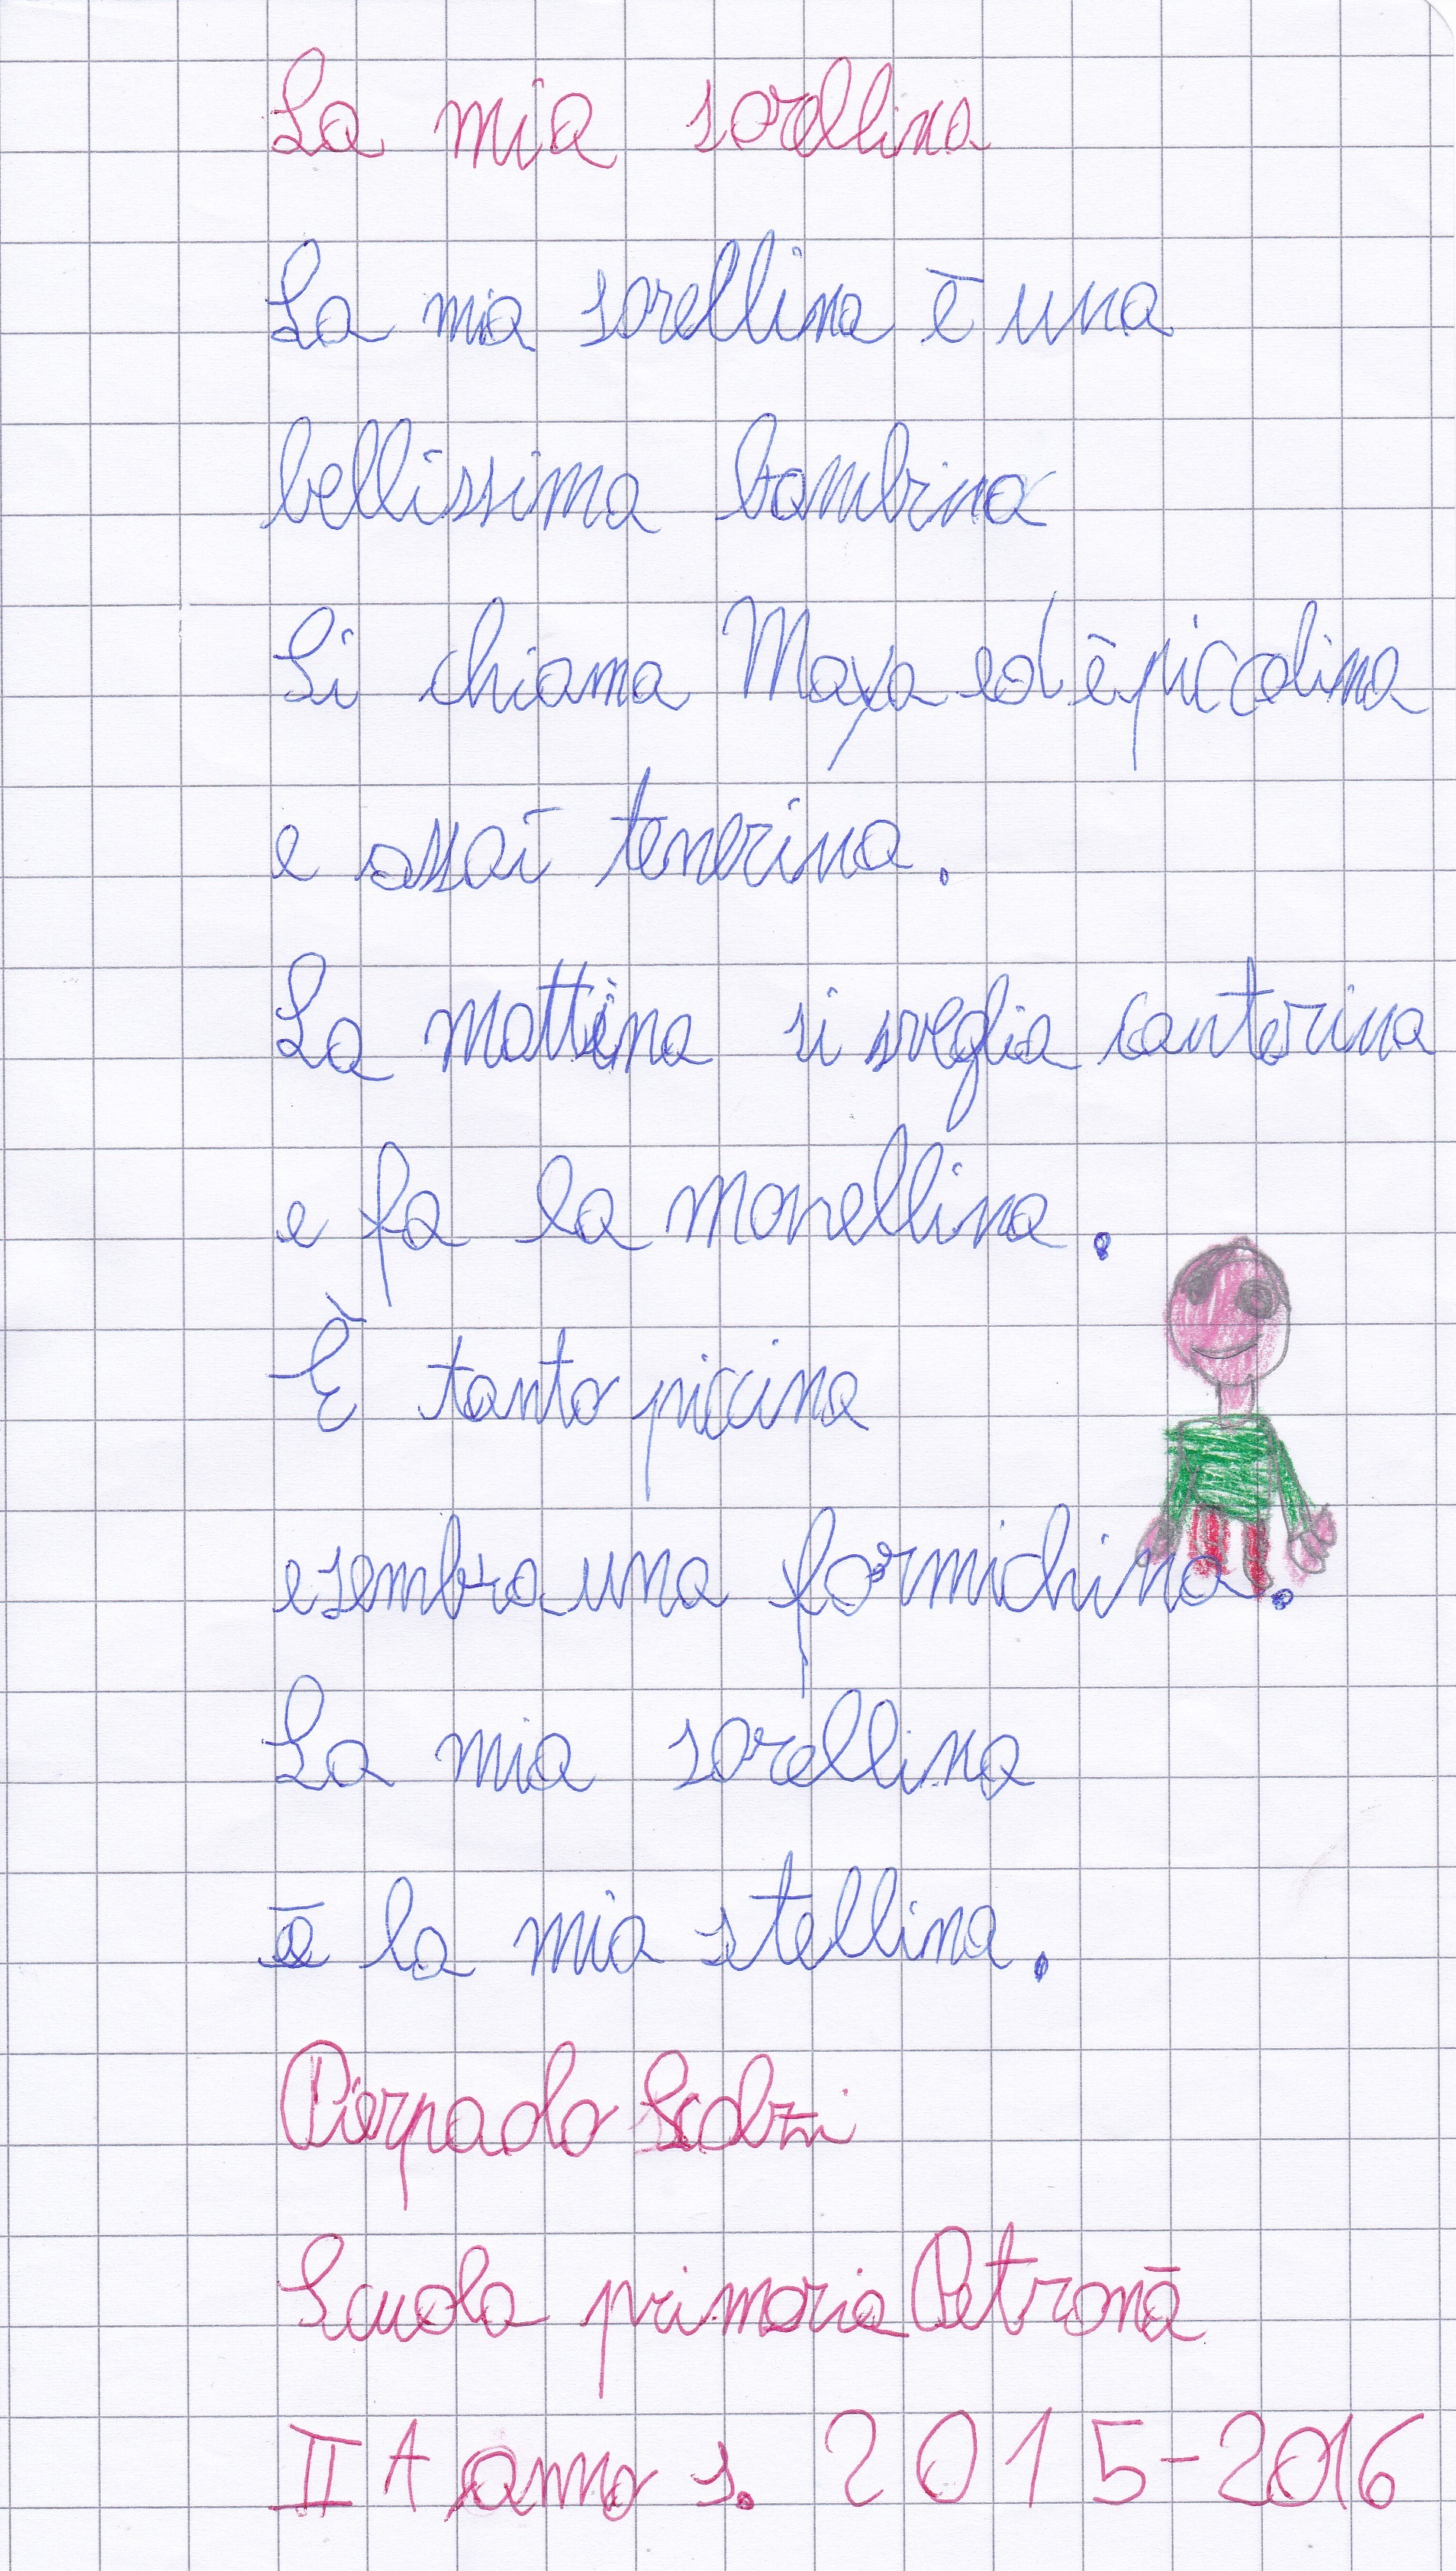 La mia sorellina
La mia sorellina è una
bellissima bambina
Si chiama Maya ed è piccolina
e assai tenerina.
La mattina si sveglia canterina
e fa la monellina.
È tanto piccina
e sembra una formichina.
La mia sorellina
è la mia stellina.
Pierpaolo Scalzi
Scuola primaria Petronà
II A anno s. 2015-2016